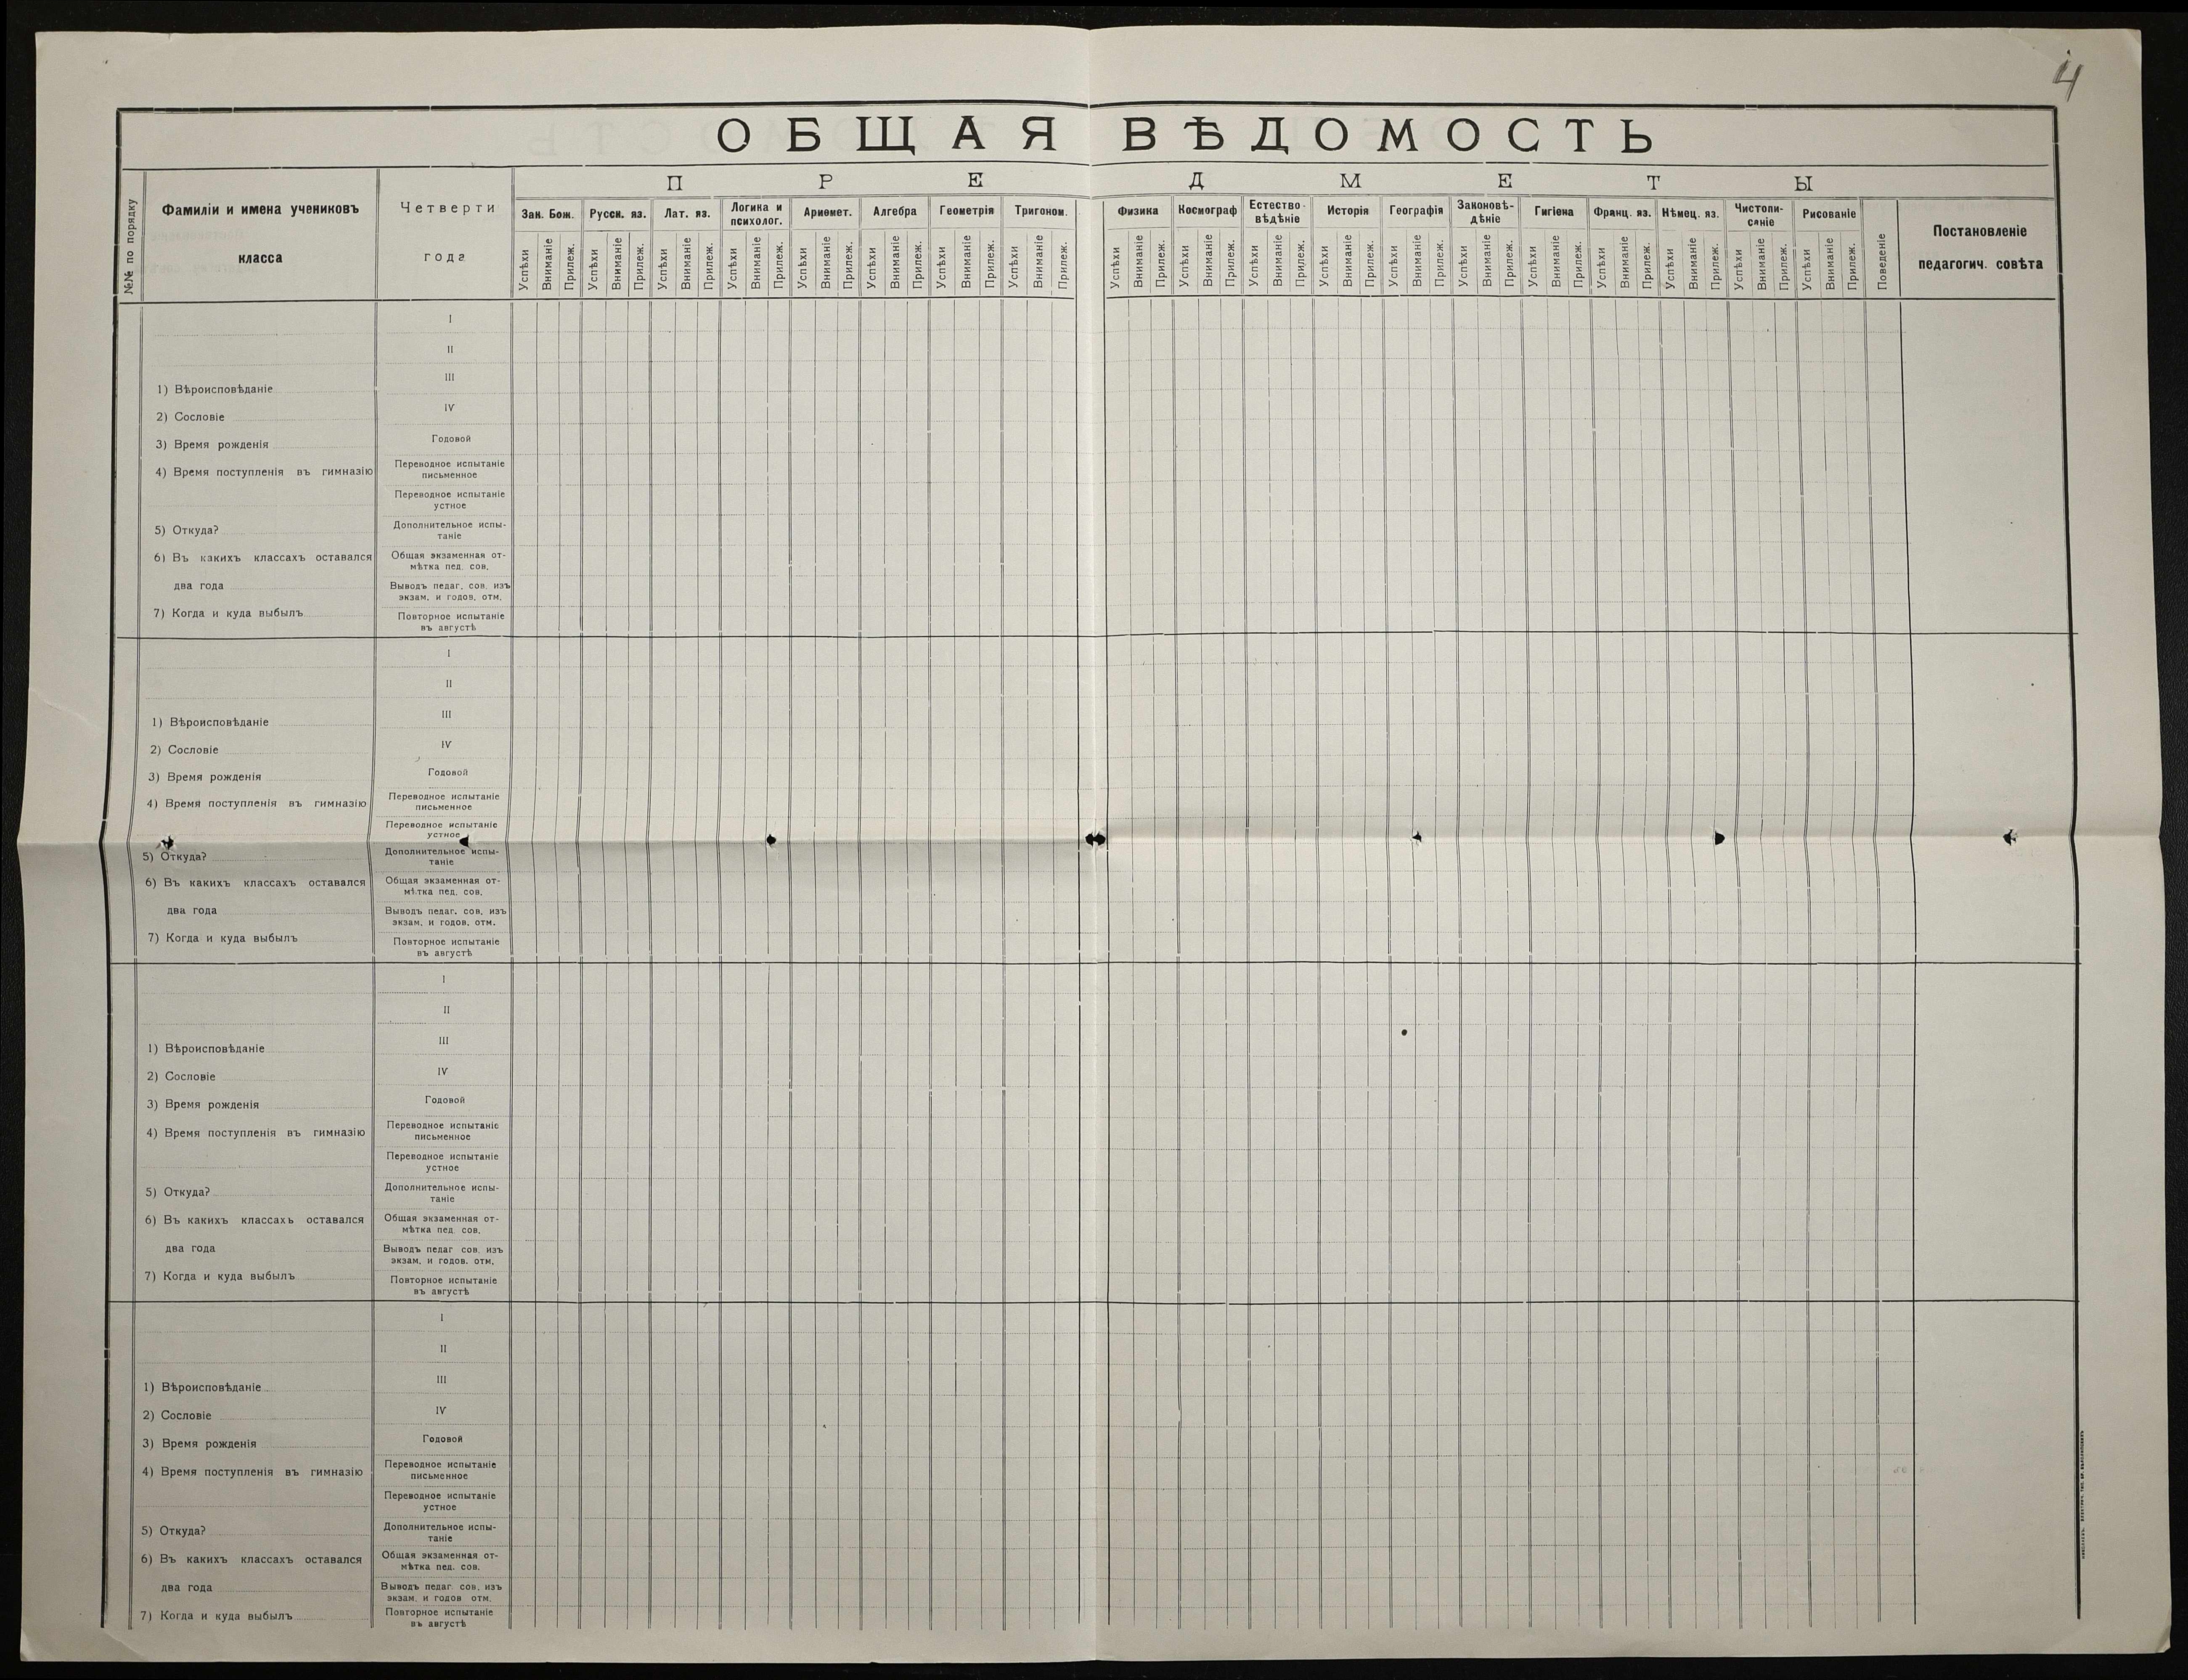 4
ОБЩАЯ ВѢДОМОСТЬ
№№ по порядку
Фамиліи и имена учениковъ
класса
Четверти
года
ПРЕДМЕТЫ
Зак. Бож.
Русск. яз.
Лат. яз.
Логика и
психолог.
Ариѳмет.
Алгебра
Геометрія
Тригоном.
Физика
Космограф
Естество-
вѣдѣніе
Исторія
Географія
Законовѣ-
дѣніе
Гигіена
Франц. яз.
Нѣмец. яз.
Чистопи-
саніе
Рисованіе
Поведеніе
Постановленіе
педагогич. совѣта
Успѣхи Вниманіе Прилеж. Успѣхи Вниманіе Прилеж. Успѣхи Вниманіе Прилеж. Успѣхи Вниманіе Прилеж. Успѣхи Вниманіе Прилеж. Успѣхи Вниманіе Прилеж. Успѣхи Вниманіе Прилеж. Успѣхи Вниманіе Прилеж. Успѣхи Вниманіе Прилеж. Успѣхи Вниманіе Прилеж. Успѣхи Вниманіе Прилеж. Успѣхи Вниманіе Прилеж. Успѣхи Вниманіе Прилеж. Успѣхи Вниманіе Прилеж. Успѣхи Вниманіе Прилеж. Успѣхи Вниманіе Прилеж. Успѣхи Вниманіе Прилеж. Успѣхи Вниманіе Прилеж. Успѣхи Вниманіе Прилеж.
I
II
III
1) Вѣроисповѣданіе
IV
2) Сословіе
Годовой
3) Время рожденія
Переводное испытаніе
письменное
4) Время поступленія въ гимназію
Переводное испытаніе
устное
Дополнительное испы-
таніе
5) Откуда?
Общая экзаменная от-
мѣтка пед. сов.
6) Въ какихъ классахъ оставался
два года
Выводъ педаг. сов. изъ
экзам. и годов. отм.
7) Когда и куда выбылъ
Повторное испытаніе
въ августѣ
I
II
III
1) Вѣроисповѣданіе
IV
2) Сословіе
Годовой
3) Время рожденія
Переводное испытаніе
письменное
4) Время поступленія въ гимназію
Переводное испытаніе
устное
Дополнительное испы-
таніе
5) Откуда?
Общая экзаменная от-
мѣтка пед. сов.
6) Въ какихъ классахъ оставался
два года
Выводъ педаг. сов. изъ
экзам. и годов. отм.
7) Когда и куда выбылъ
Повторное испытаніе
въ августѣ
I
II
III
1) Вѣроисповѣданіе
IV
2) Сословіе
Годовой
3) Время рожденія
Переводное испытаніе
письменное
4) Время поступленія въ гимназію
Переводное испытаніе
устное
Дополнительное испы-
таніе
5) Откуда?
Общая экзаменная от-
мѣтка пед. сов.
6) Въ какихъ классахъ оставался
два года
Выводъ педаг сов. изъ
экзам. и годов. отм.
7) Когда и куда выбылъ
Повторное испытаніе
въ августѣ
I
II
III
1) Вѣроисповѣданіе
IV
2) Сословіе
Годовой
3) Время рожденія
Переводное испытаніе
письменное
4) Время поступленія въ гимназію
Переводное испытаніе
устное
Дополнительное испы-
таніе
5) Откуда?
Общая экзаменная от-
мѣтка пед. сов.
6) Въ какихъ классахъ оставался
два года
Выводъ педаг. сов. изъ
экзам. и годов отм.
7) Когда и куда выбылъ
Повторное испытаніе
въ августѣ